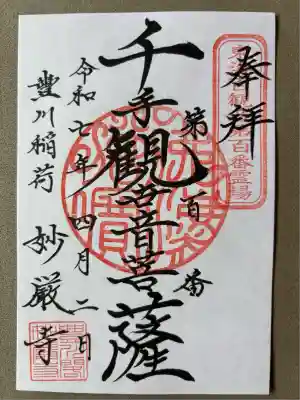 奉拝
第百番
千手観世音菩薩
令和七年四月二日
豊川稲荷 妙厳寺